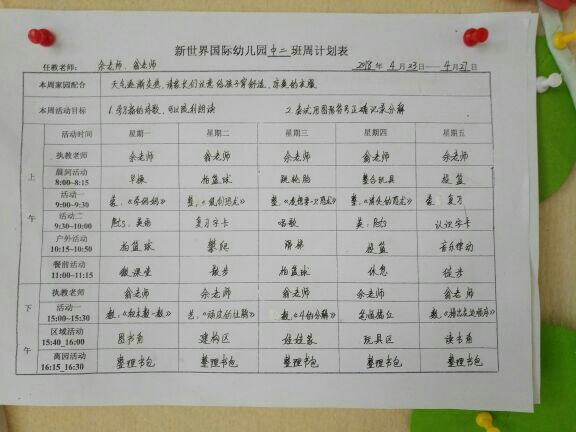 新世界国际幼儿园中二班周计划表
任教老师： 余老师、翁老师 2018 年 4 月 23 日—— 4 月 27 日
本周家园配合 天气逐渐炎热，请家长们注意给孩子穿舒适、凉爽的衣服
本周活动目标 1. 的 数，可以 利朗读 2. 尝试用图形符号正确记录分解
活动时间 星期一 星期二 星期三 星期四 星期五
上午
执教老师 余老师 翁老师 余老师 翁老师 余老师
晨间活动 8:00~8:15 早操 拍篮球 跳轮胎 整合玩具 投篮
活动一 9:00~9:30 复习
活动二 9:30~10:00 英语 复习字卡 唱歌 英： 认识字卡
户外活动 10:15~10:50 拍篮球 攀爬 滑梯 投篮 音乐律动
餐前活动 11:00~11:15 微课堂 散步 拍篮球 休息 徒步
下午
执教老师 翁老师 余老师 翁老师 余老师 翁老师
活动一 15:00~15:30 数：《 数一数》 艺：《 的 》 数：《4的分解》 数：《 》
区域活动 15:40_16:00 图书角 建构区 娃娃家 玩具区 读书角
离园活动 16:15_16:30 整理书包 整理书包 整理书包 整理书包 整理书包